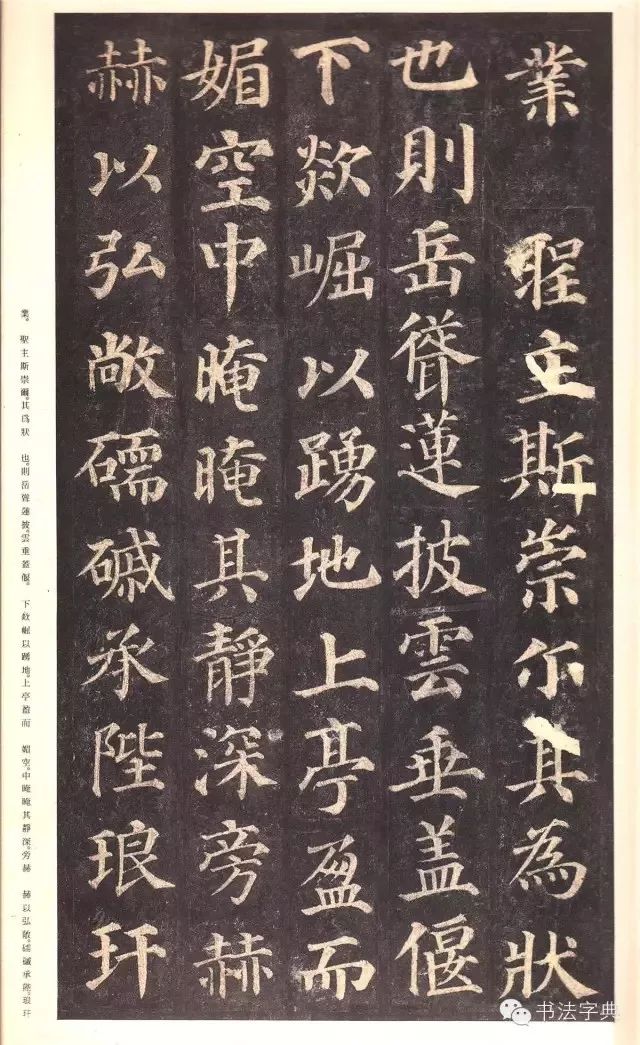 業 聖主斯崇尔其為狀
也則岳聳蓮披雲垂盖偃
下欻崛以踴地上亭盈而
媚空中晻晻其靜深旁赫
赫以弘敞礝磩承陛琅玕
業。 聖主斯崇爾。其為狀 也。則岳聳蓮披。雲垂蓋偃。 下欻崛以踴地。上亭盈而 媚空。中晻晻其靜深。旁赫 赫以弘敞。礝磩承陛。琅玕
书法字典